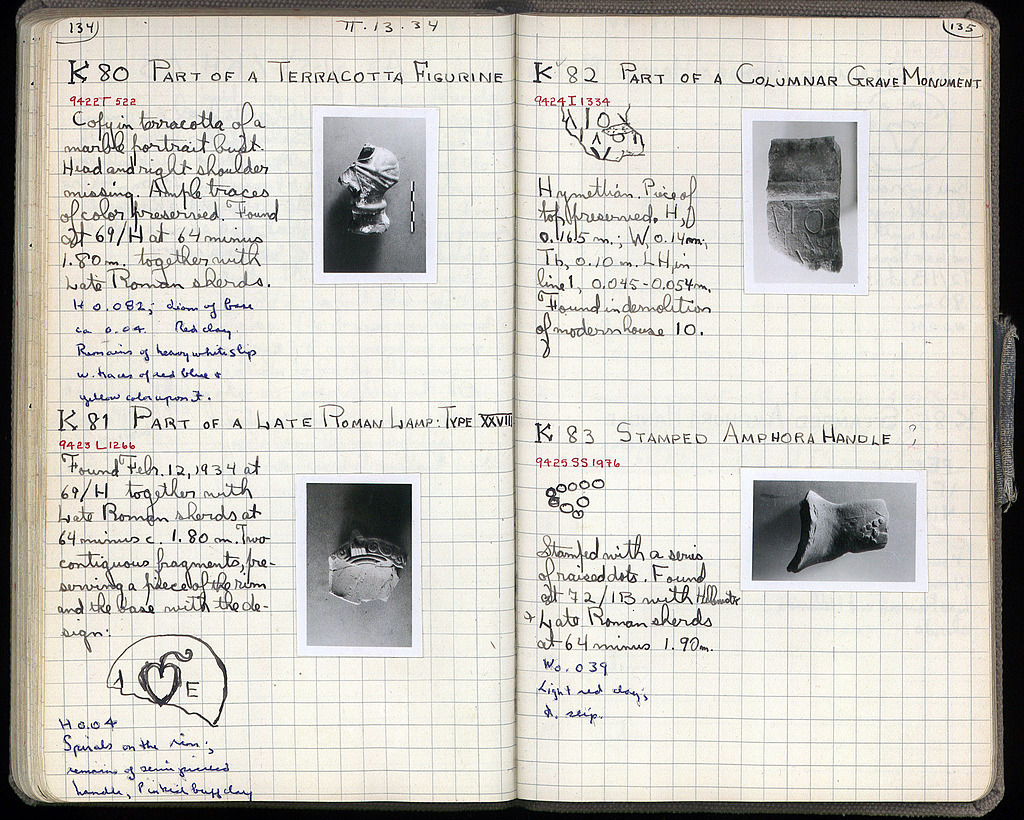 134
II. 13. 34
K 80 PART OF A TERRACOTTA FIGURINE
9422 T 522
Copy in terracotta of a
marble portrait bust.
Head and right shoulder
missing. Ample traces
of color preserved. Found
at 69/H at 64 minus
1.80 m. together with
Late Roman sherds.
H 0.082; diam of base
ca 0.04. Red clay.
Remains of heavy white slip
w. traces of red blue &
yellow color upon it.
K 81 PART OF A LATE ROMAN LAMP: TYPE XXVIII
9423 L 1266
Found Febr. 12, 1934 at
69/H together with
Late Roman sherds at
64 minus c. 1.80 m. Two
contiguous fragments, pre-
serving a piece of the rim
and the base with the de-
sign:
Λ E
H 0.04
Spirals on the rim;
remains of semi pierced
handle, Pinkish buff clay
135
K 82 PART OF A COLUMNAR GRAVE MONUMENT
9424 I 1334
Hymettian. Piece of
top preserved. H,
0.165 m.; W. 0.14 m;
Th, 0.10 m. LH, in
line 1, 0.045-0.054 m.
Found in demolition
of modern house 10.
K 83 STAMPED AMPHORA HANDLE ?
9425 SS 1976
Stamped with a series
of raised dots. Found
at 72/IB with
+ Late Roman sherds
at 64 minus 1.90 m.
W 0.039
Light red clay;
slip.